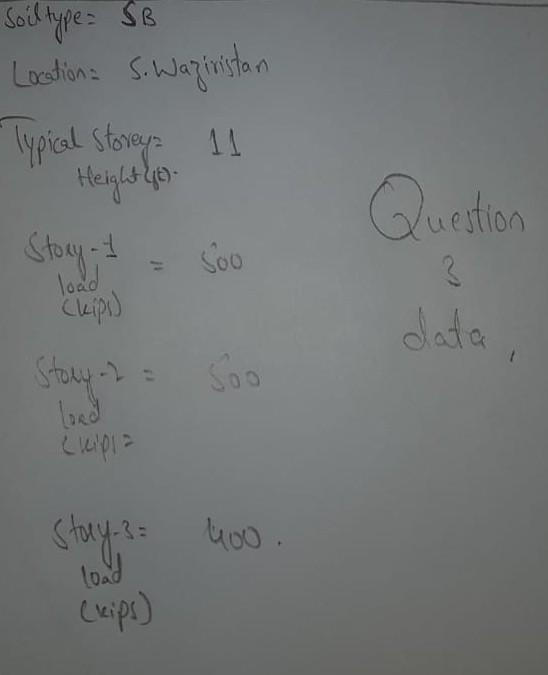 Soil type = SB
Location = S. Waziristan
Typical Storey = 11
Height (ft).
Question
3
data,
Story-1 = 500
load
(kips)
Story-2 = 500
load
(kips =
Story-3 = 400.
load
(kips)